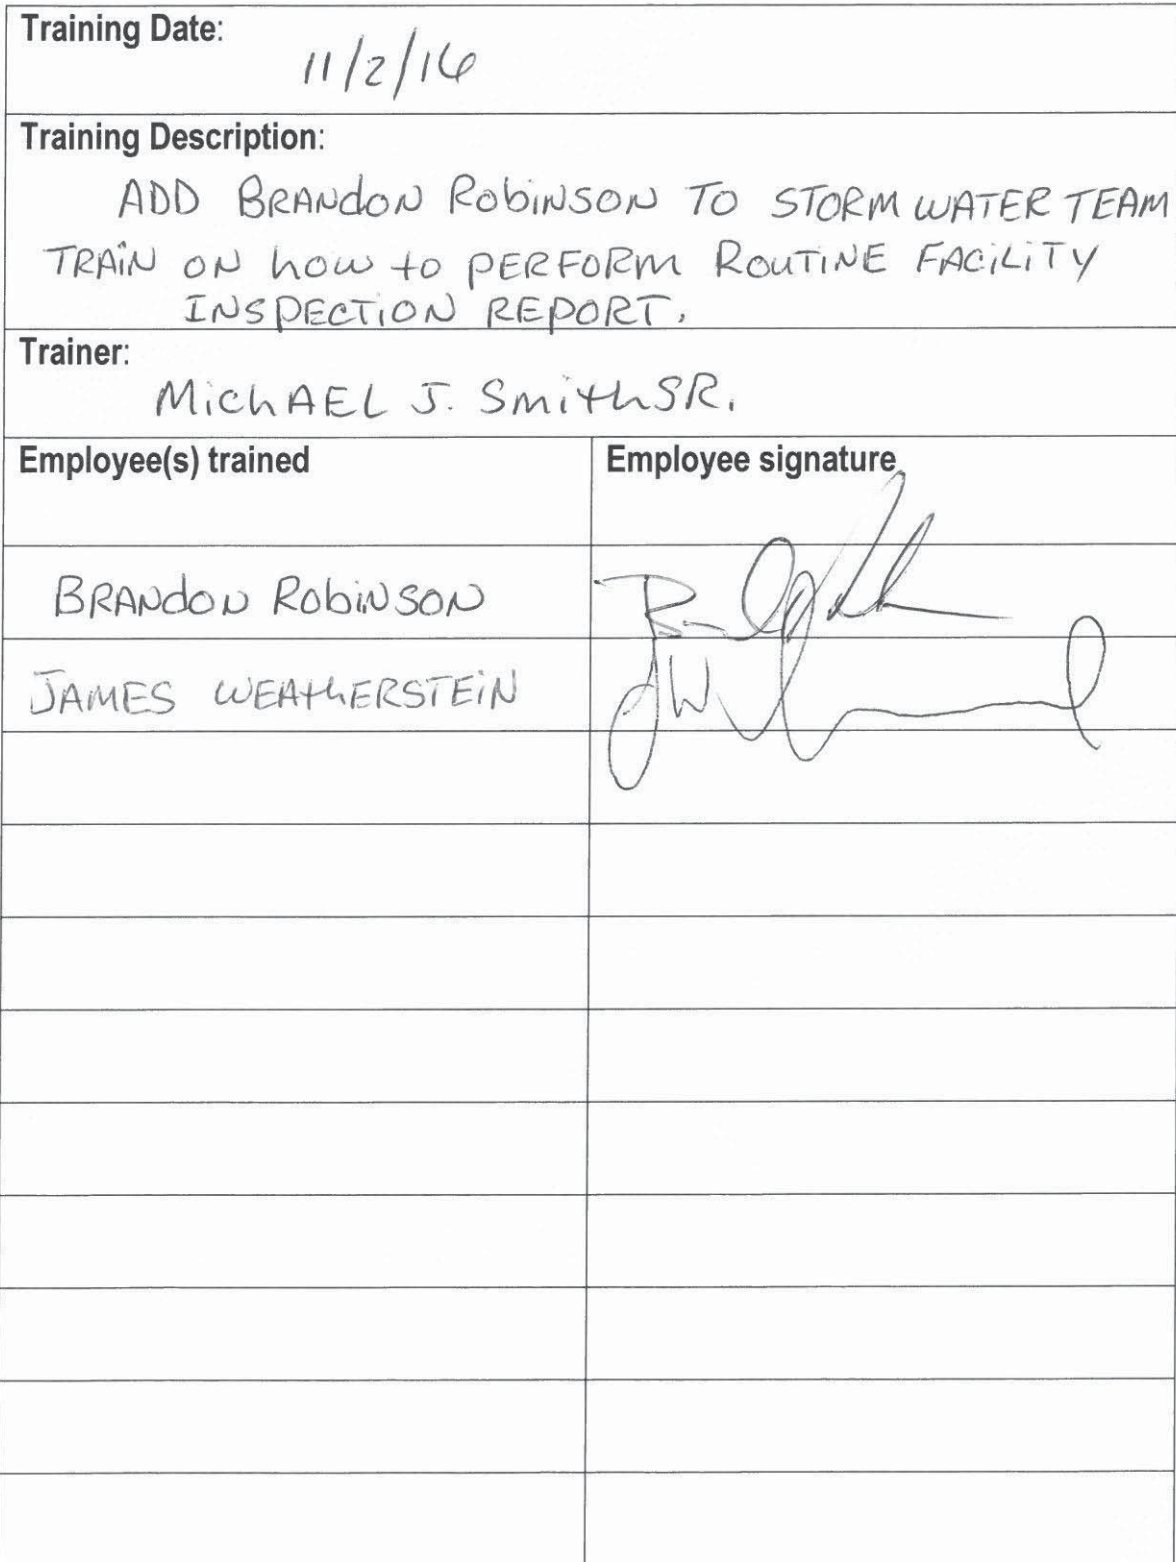 Training Date:
11/2/16
Training Description:
ADD BRANDON ROBINSON TO STORM WATER TEAM
TRAIN ON how to PERFORM ROUTINE FACILITY
INSPECTION REPORT.
Trainer:
MichAEL J. SmithSR.
Employee(s) trained Employee signature
BRANDON ROBINSON
JAMES WEATHERSTEIN